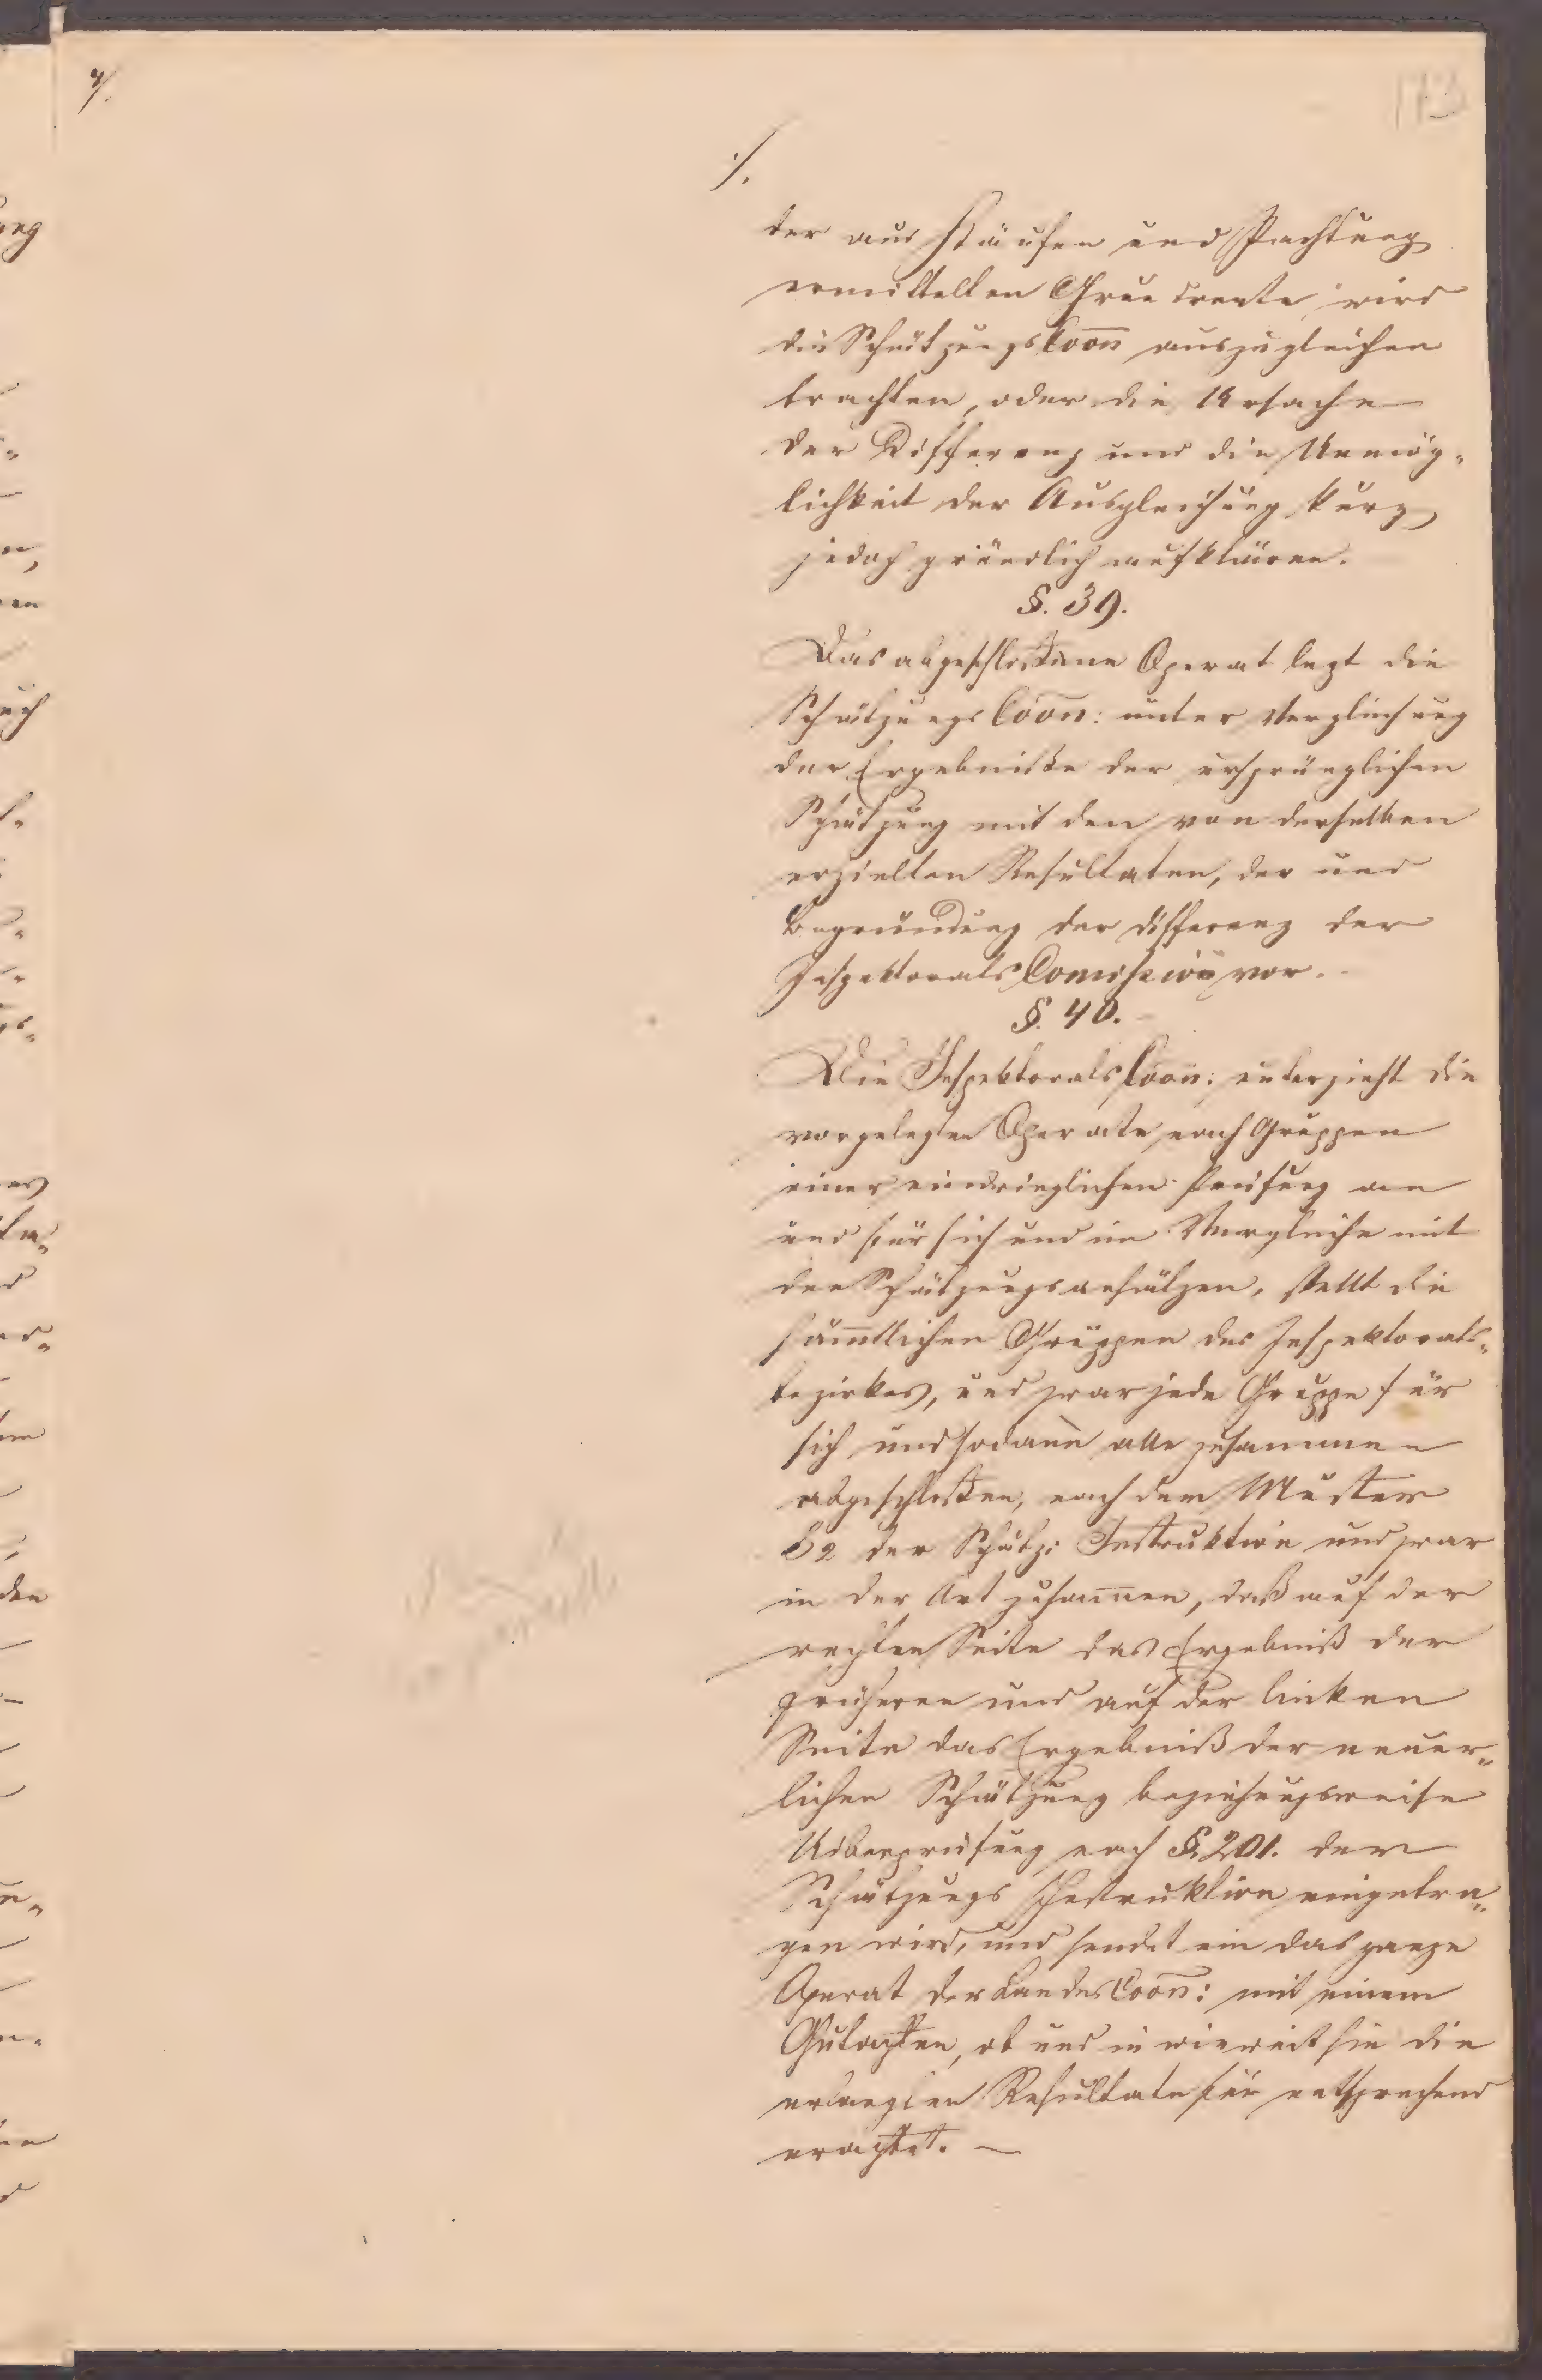 ./.
der aus Käufen und Pachtung
ermittelten Grundrente, wird
die Schätzungs Coon̄ auszugleichen
trachten, oder die Ursache
der Differenz und die Unmög-
lichkeit der Ausgleichung kurz,
jedoch gründlich aufklären.
§. 39.
Das abgeschlossene Operat legt die
Schätzungs Coon̄: unter Vergleichung
der Ergebnisse der ursprünglichen
Schätzung mit den von derselben
erzielten Resultaten, der und
Begründung der Differenz der
Inspektorats Comission vor.
§. 40.
Die Inspektorats Coon̄: unterzieht die
vorgelegten Operate nach Gruppen
einer eindringlichen Prüfung an
und für sich und im Vergleiche mit
den Schätzungsansätzen, stellt die
säm̄tlichen Gruppen des Inspektorats-
bezirkes, und zwar jede Gruppe für
sich und sodan̄ alle zusammen
abgeschlossen, nach dem Muster
der Schätz: Instruktion und zwar
in der Art zusam̄en, daß auf der
rechten Seite das Ergebniß der
früheren und auf der linken
Seite das Ergebniß der neuer-
lichen Schätzung beziehungsweise
Uiberprüfung nach §. 201. der
Schätzungs Instruktion eingetra-
gen wird, und sendet ein das ganze
Operat der Landes Coon̄: mit einem
Gutachten, ob und in wieweit sie die
erlangten Resultate für entsprechend
erachtet. —